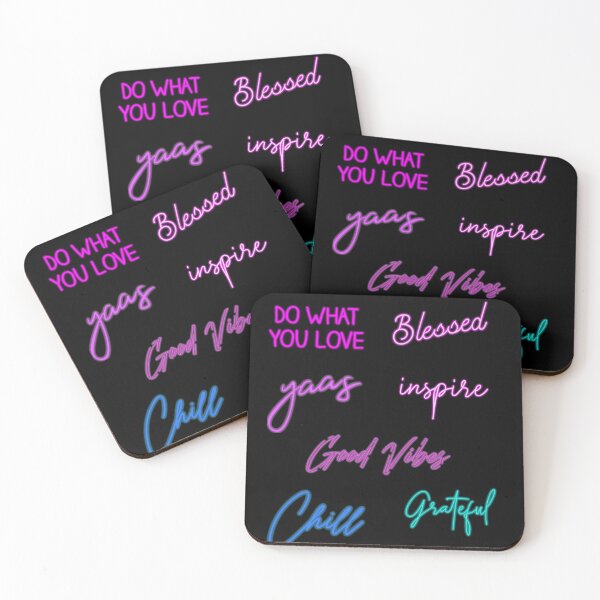 DO WHAT
YOU LOVE
Blessed
yaas
inspire
Vibes
DO WHAT
YOU LOVE
Blessed
yaas
inspire
Good Vibes
ful
DO WHAT
YOU LOVE
Blessed
yaas
inspire
Good Vibe
Chill
DO WHAT
YOU LOVE
Blessed
yaas
inspire
Good Vibes
Chill
Grateful